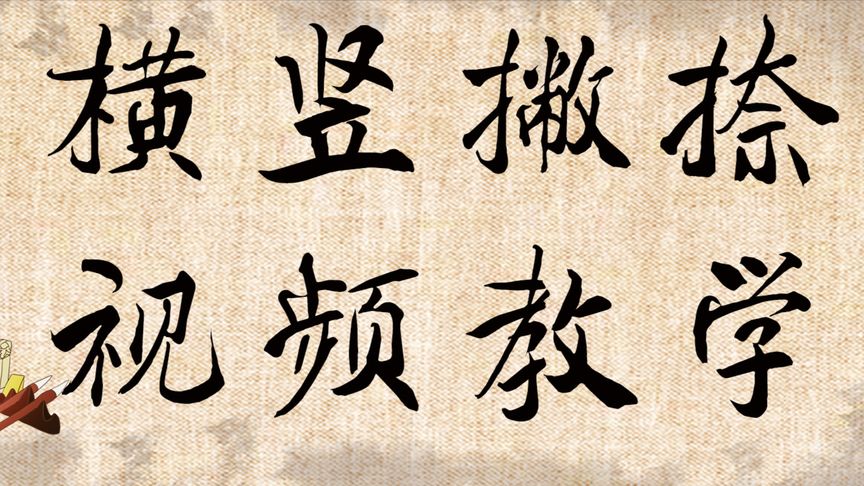 横竖撇捺
视频教学